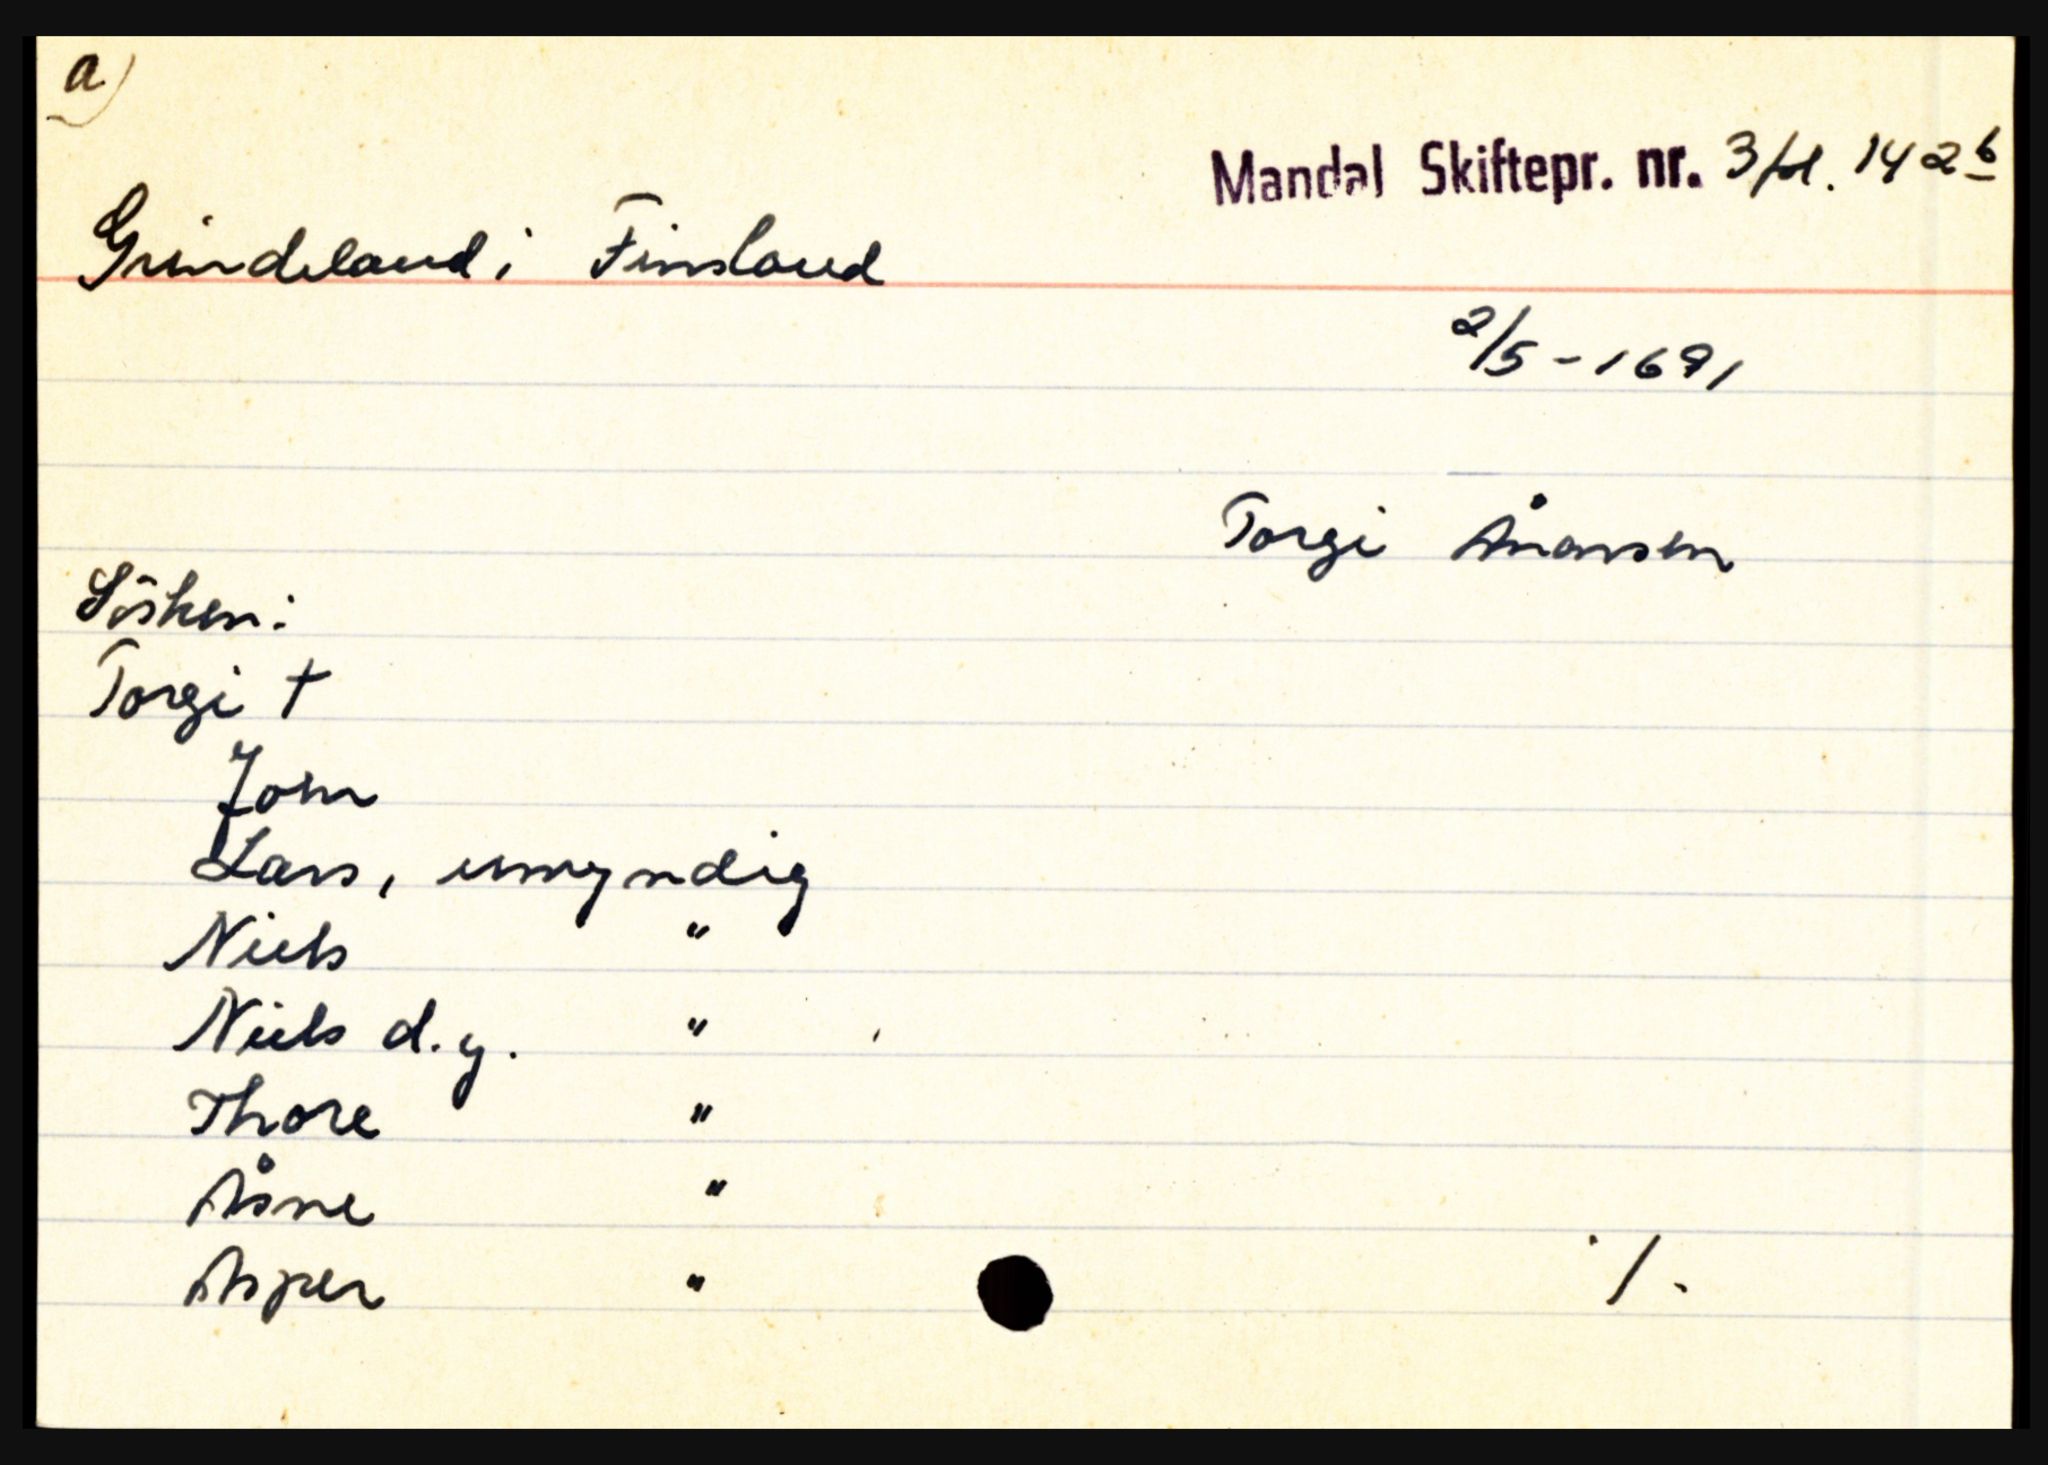 a)
Mandal Skiftepr. nr. 3 fol. 142 b
Grindeland i Finsland
2/5 - 1691
Torgi Ånonsen
Søsken:
Torgi †
Jon
Lars, umyndig
Niels "
Niels d.y. "
Thore "
Åsne "
Asper "
./.